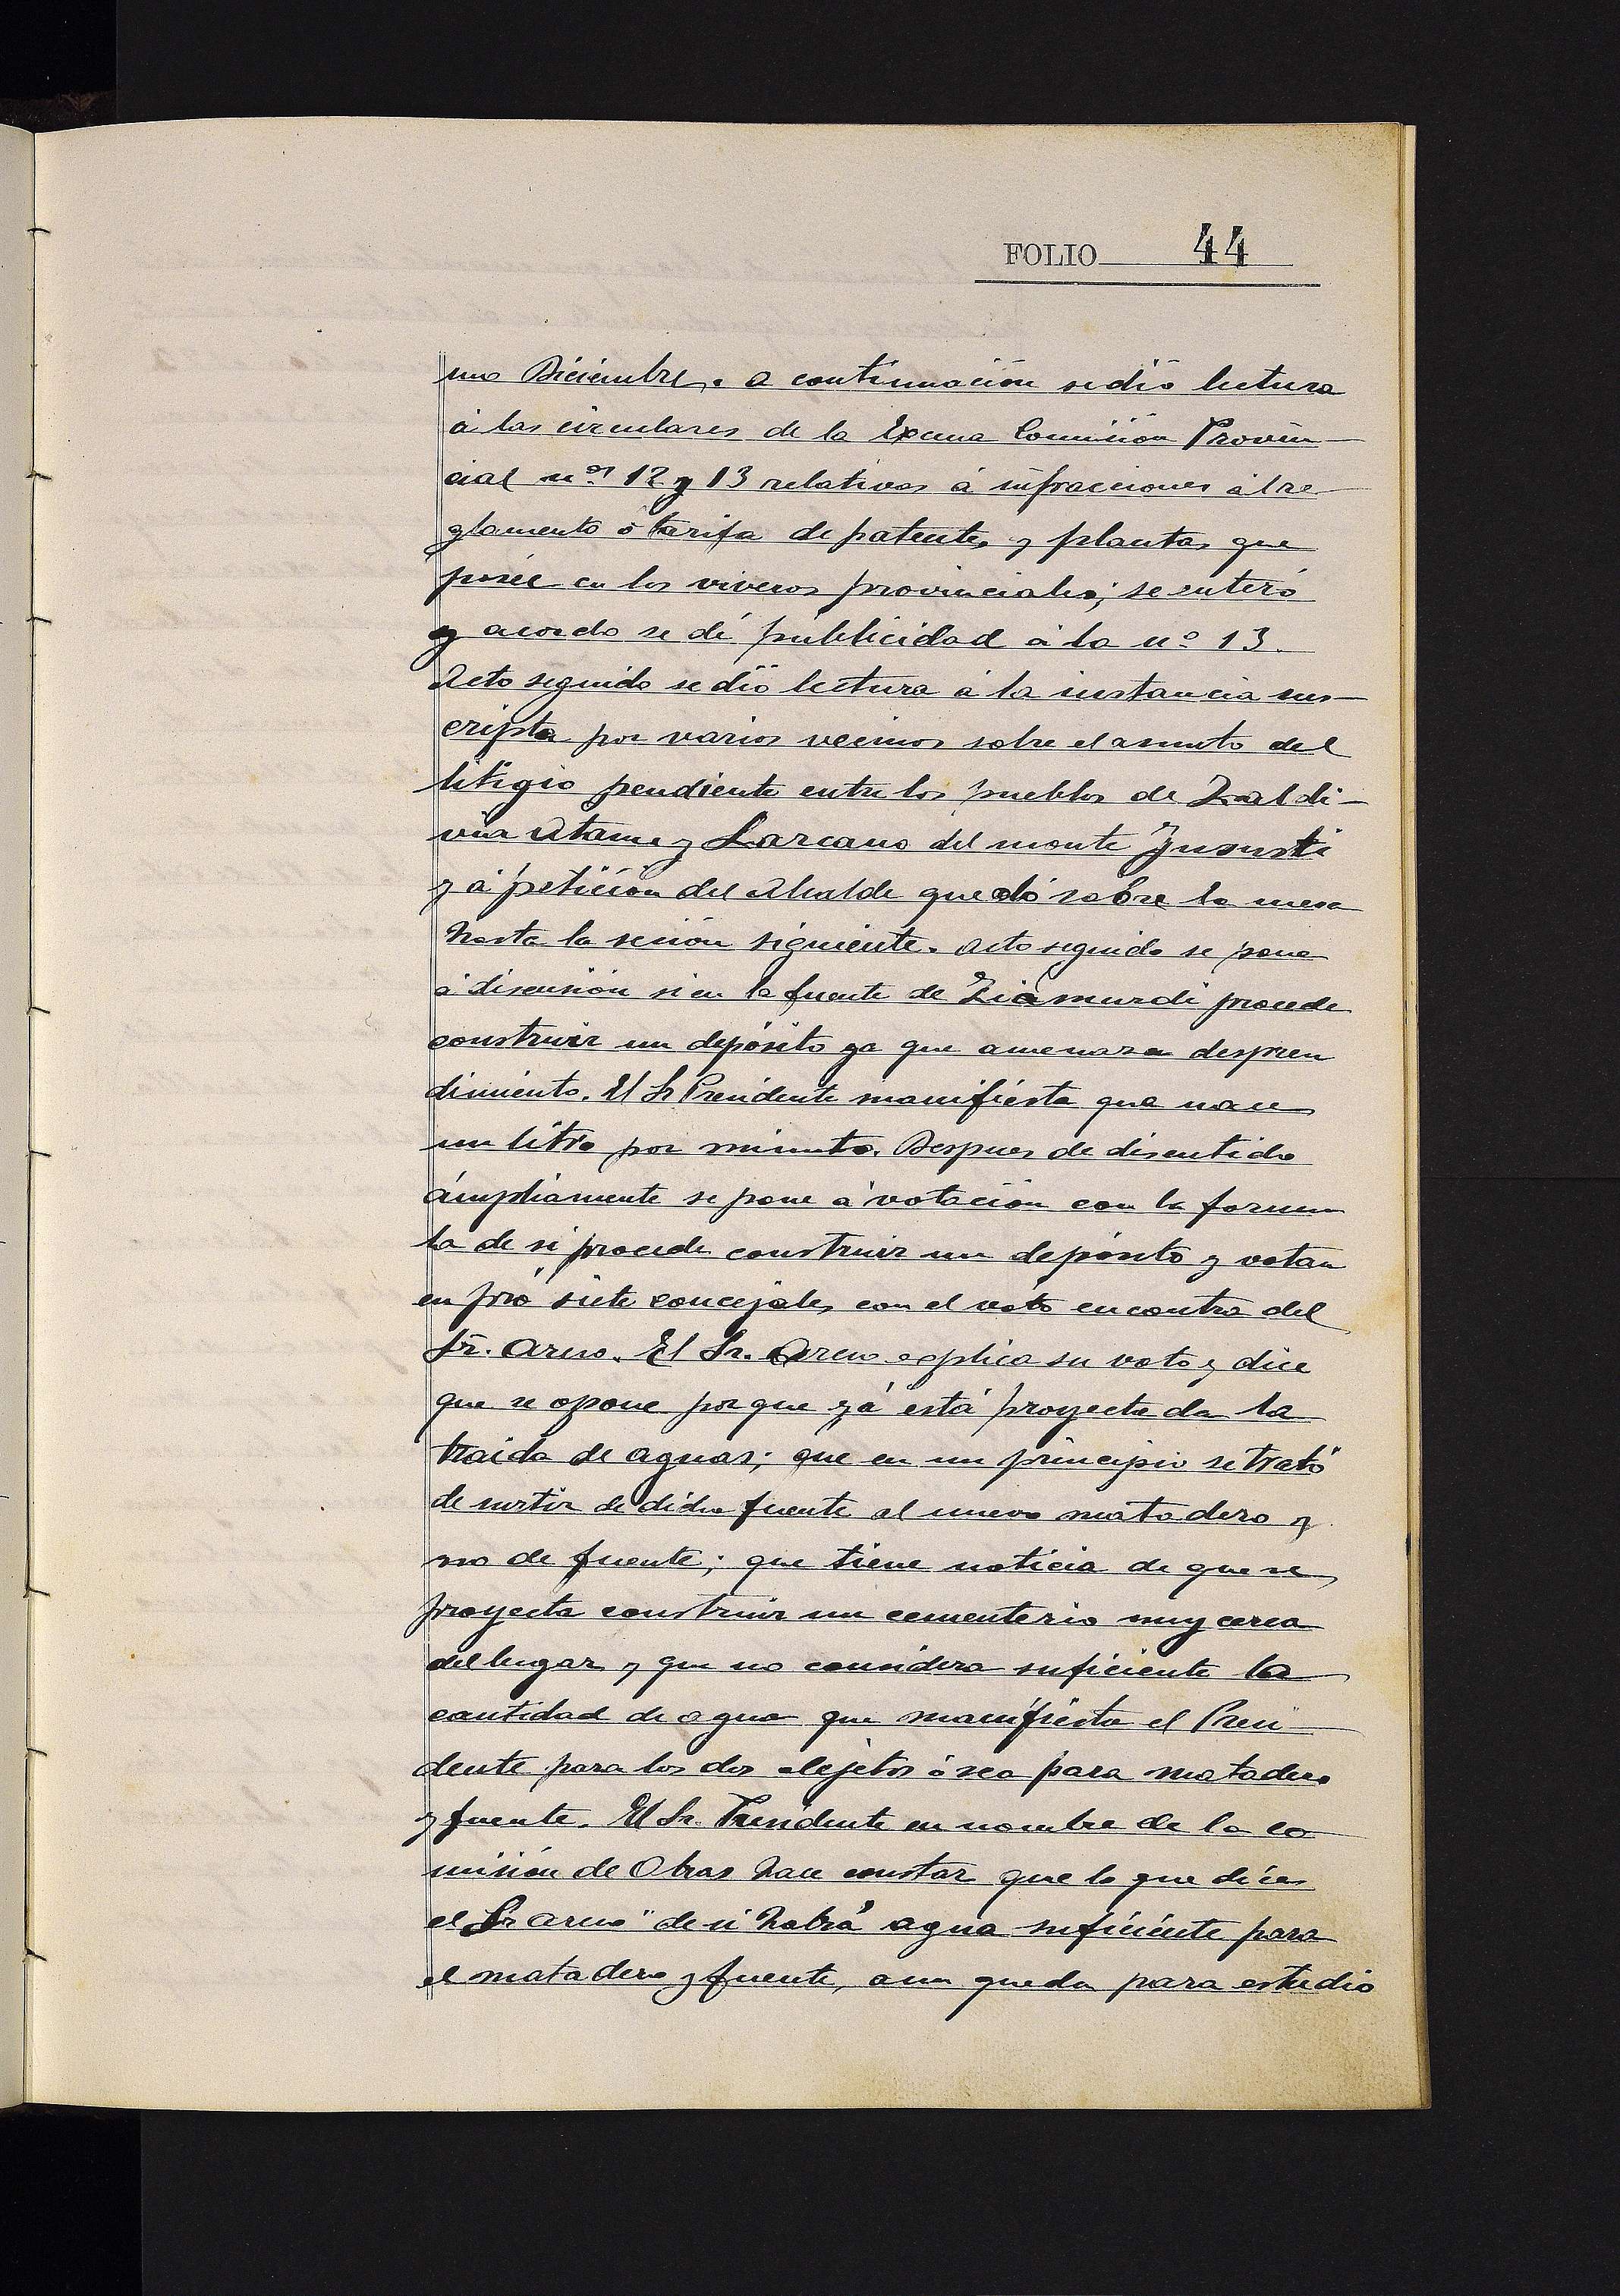 FOLIO 44
mo Diciembre. a continuación se dió lectura
á las circulares de la Excma Comisión Provin-
cial nos 12 y 13 relativas á infracciones ál re-
glamento ó tarifa de patentes y plantas que
posée en los viveros provinciales; se enteró
y acordo se dé publicidad á la nº 13.
Acto seguido se dió lectura á la instancia sus-
cripta por varios vecinos sobre el asunto del
litigio pendiente entre los pueblos de Zaldi-
via Ataun y Lazcano del monte
y á petición del Alcalde quedó sobre la mesa
hasta la sesión siguiente. acto seguido se pone
á discusión si en la fuente de Ziamurdi procede
construir un depósito ya que amenaza despren
dimiento. El Sr Presidente manifiesta que nace
un litro por minuto. Despues de discutido
ámpliamente se pone á votación con la formu
la de si procede construir un depósito y votan
en pró siete concejales con el voto en contra del
Sr. Areso. El Sr. Areso explica su voto y dice
que se opone por que yá está proyectada la
traida de aguas; que en un principio se trató
de surtir de dicha fuente al nuevo matadero y
no de fuente; que tiene noticia de que se
proyecta construir un cementerio muy cerca
del lugar y que no considera suficiente la
cantidad de agua que manifiesta el Presi-
dente para los dos objetos ó sea para matadero
y fuente. El Sr. Presidente en nombre de la co
misión de Obras hace constar que lo que dice
el Sr areso "de si habrá agua suficiente para
el matadero y fuente, aun queda para estudio